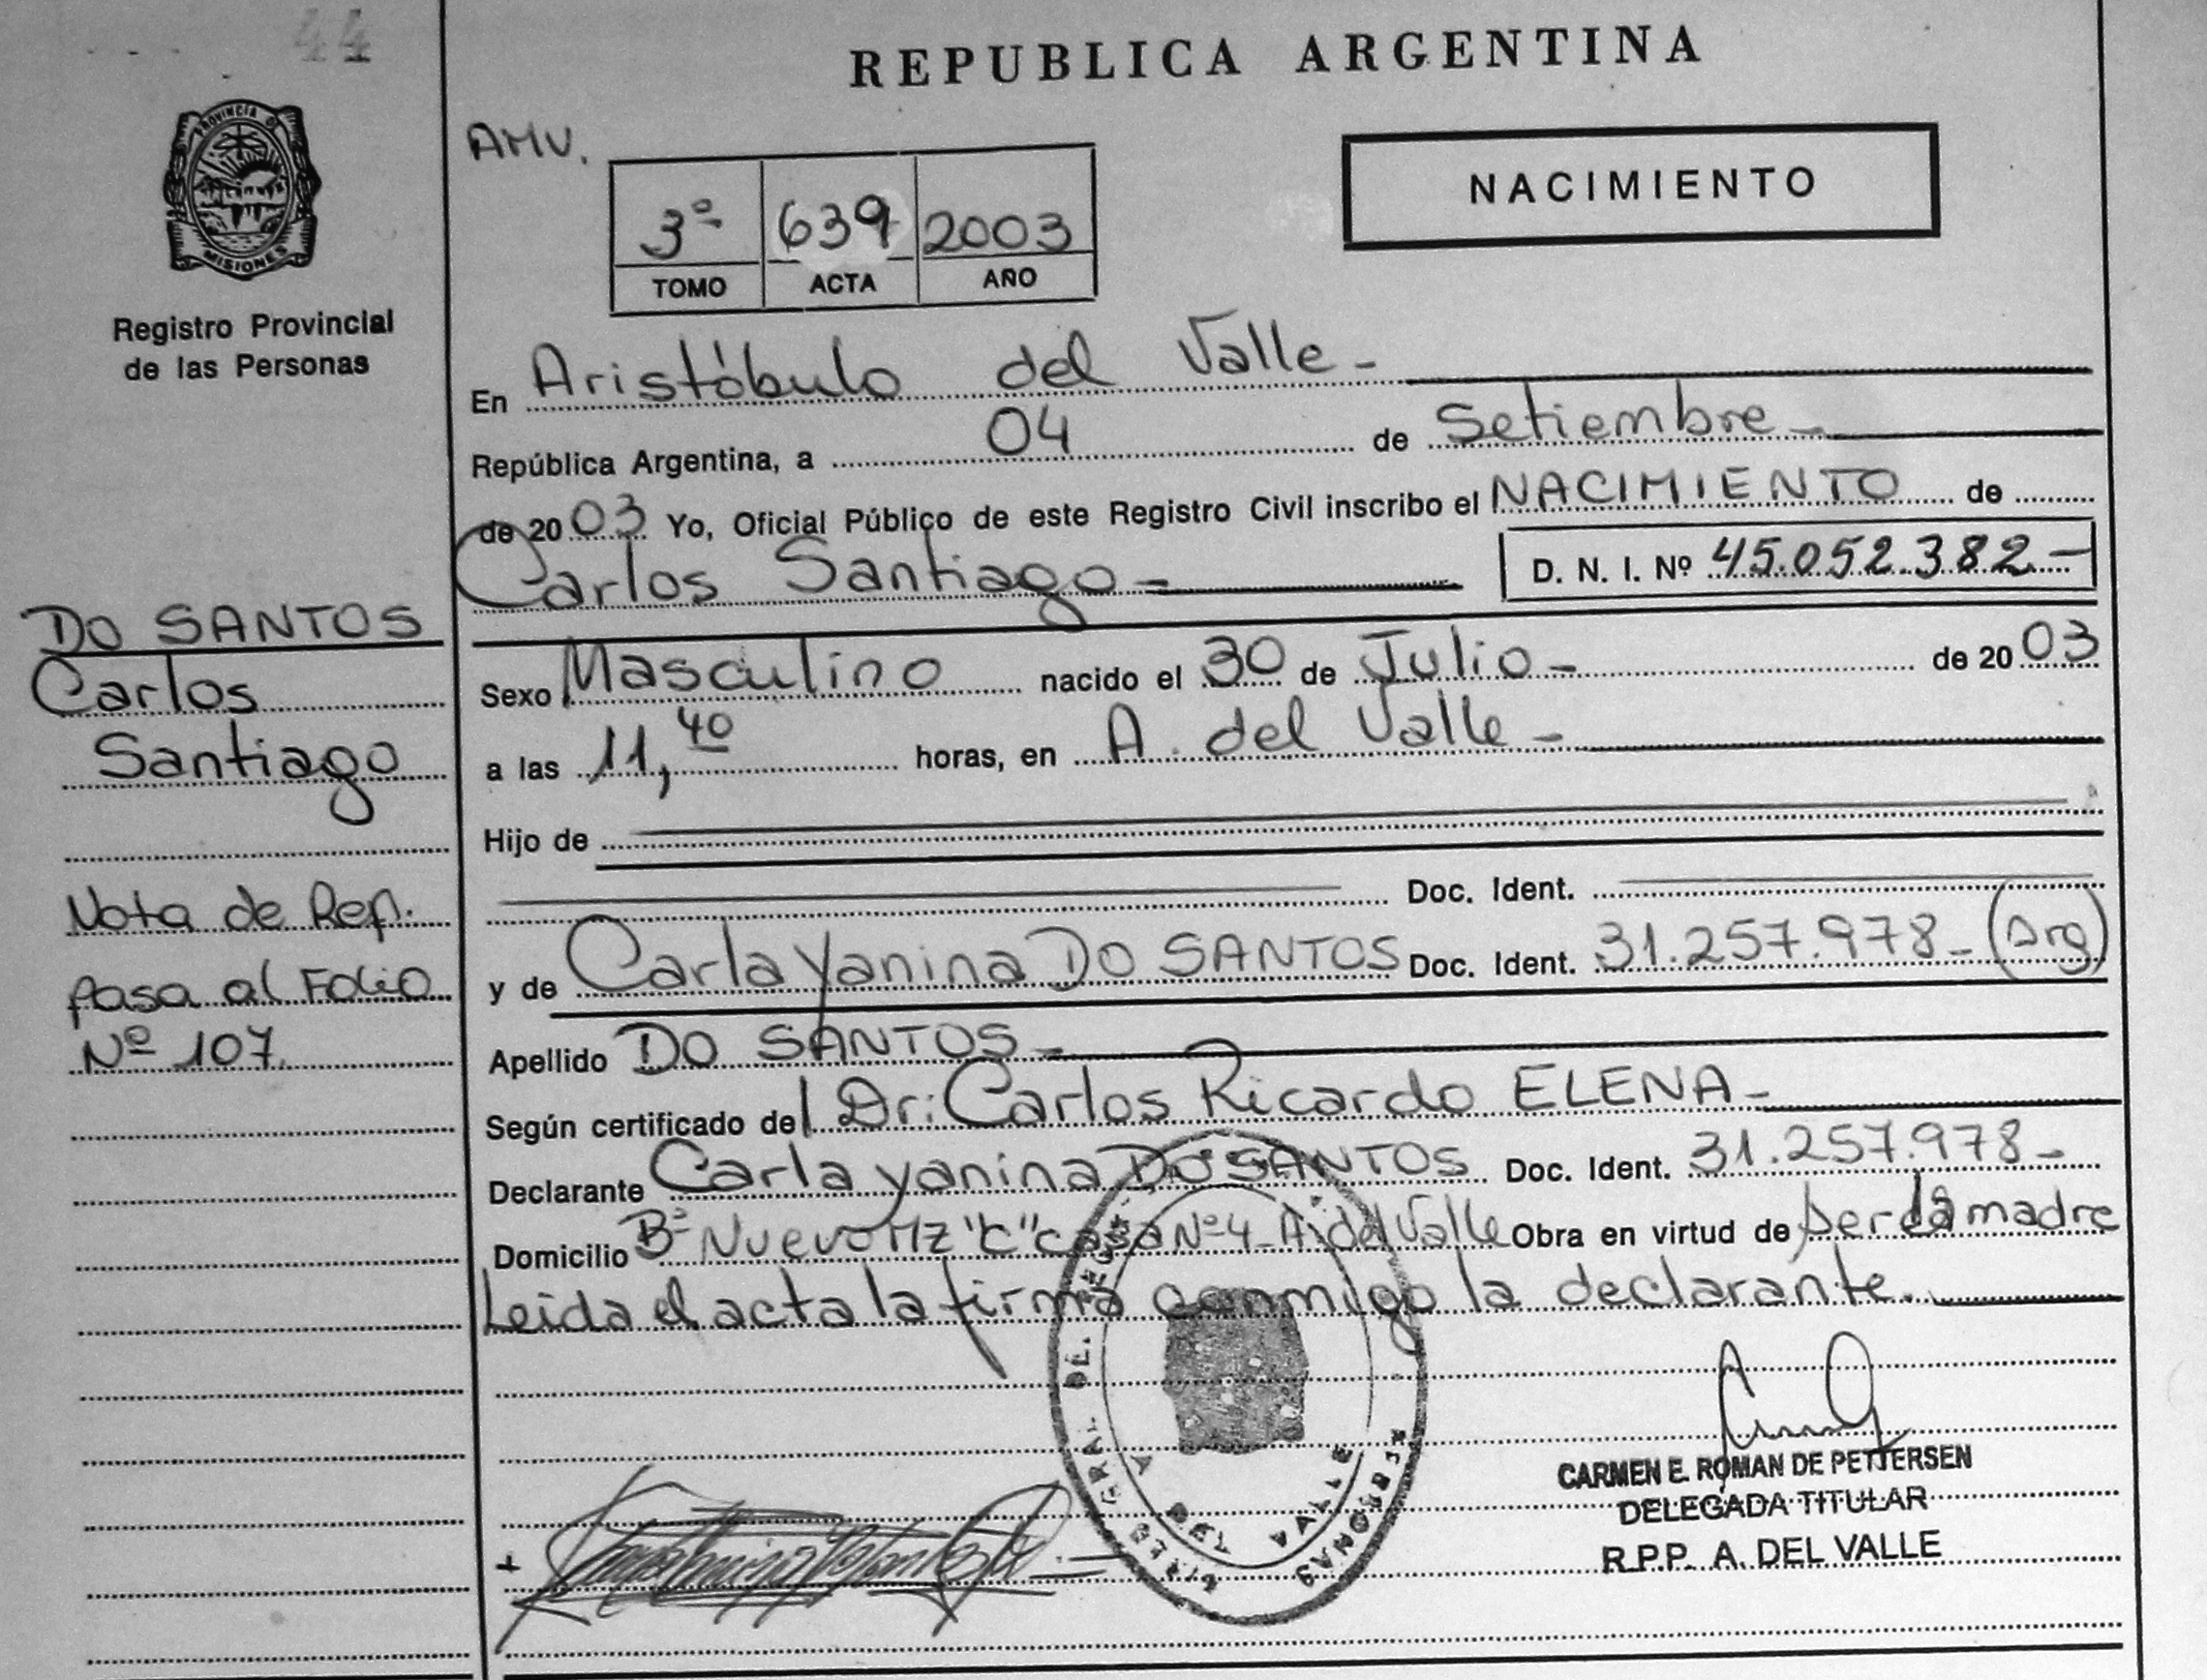 44
REPUBLICA ARGENTINA
PROVINCIA DE
MISIONES
Registro Provincial
de las Personas
AMV.
3º 639 2003
TOMO ACTA AÑO
NACIMIENTO
En Aristóbulo del Valle -
República Argentina, a 04 de Setiembre -
de 2003 Yo, Oficial Público de este Registro Civil inscribo el NACIMIENTO de
Carlos Santiago =
D. N. I. Nº 45.052.382 -
DO SANTOS
Carlos
Santiago
Sexo Masculino nacido el 30 de Julio - de 2003
a las 11,40 horas, en A. del Valle -
Hijo de
Doc. Ident.
Nota de Ref.
pasa al Folio
Nº 107
y de Carla Yanina DO SANTOS Doc. Ident. 31.257.978 - (Arg)
Apellido DO SANTOS -
Según certificado del Dr: Carlos Ricardo ELENA -
Declarante Carla yanina DO SANTOS Doc. Ident. 31.257.978 -
Domicilio Bº Nuevo Mz "C" casa Nº 4 - A. del Valle Obra en virtud de ser la madre
Leida el acta la firma conmigo la declarante.
CARMEN E. ROMAN DE PETTERSEN
DELEGADA TITULAR
R.P.P. A. DEL VALLE